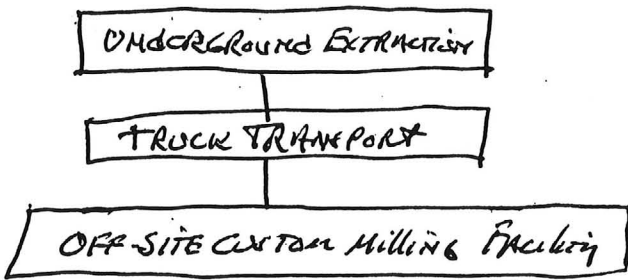 UNDERGROUND EXTRACTION
TRUCK TRANSPORT
OFF-SITE CUSTOM MILLING FACILITY